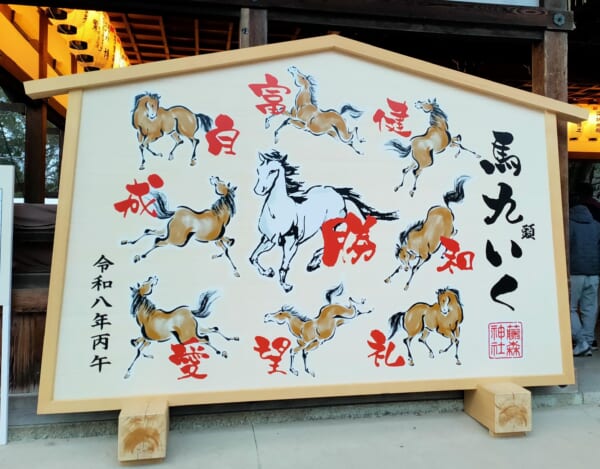 馬九頭いく
健
富
自
和
勝
成
礼
望
愛
令和八年丙午
藤森神社